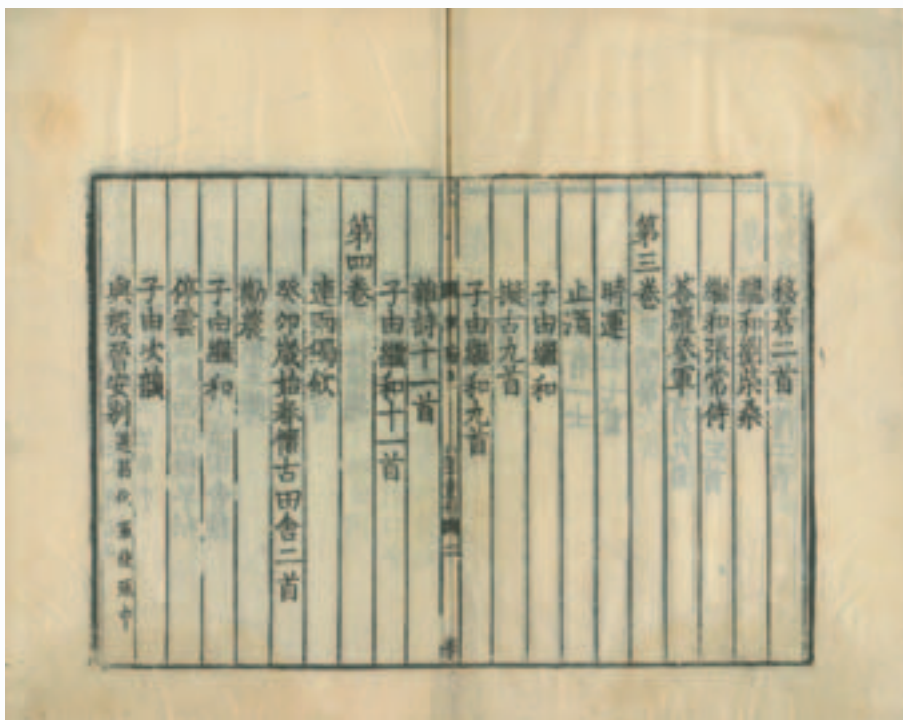 移居二首
繼和劉柴桑
繼和張常侍
荅龐參軍
第三卷
時運
止酒
子由繼和
擬古九首
子由繼和九首
雜詩十一首
子由繼和十一首
第四卷
連雨獨飲
癸卯歲始春懷古田舍二首
勸農
子由繼和
停雲
子由次韻
與殷晉安別